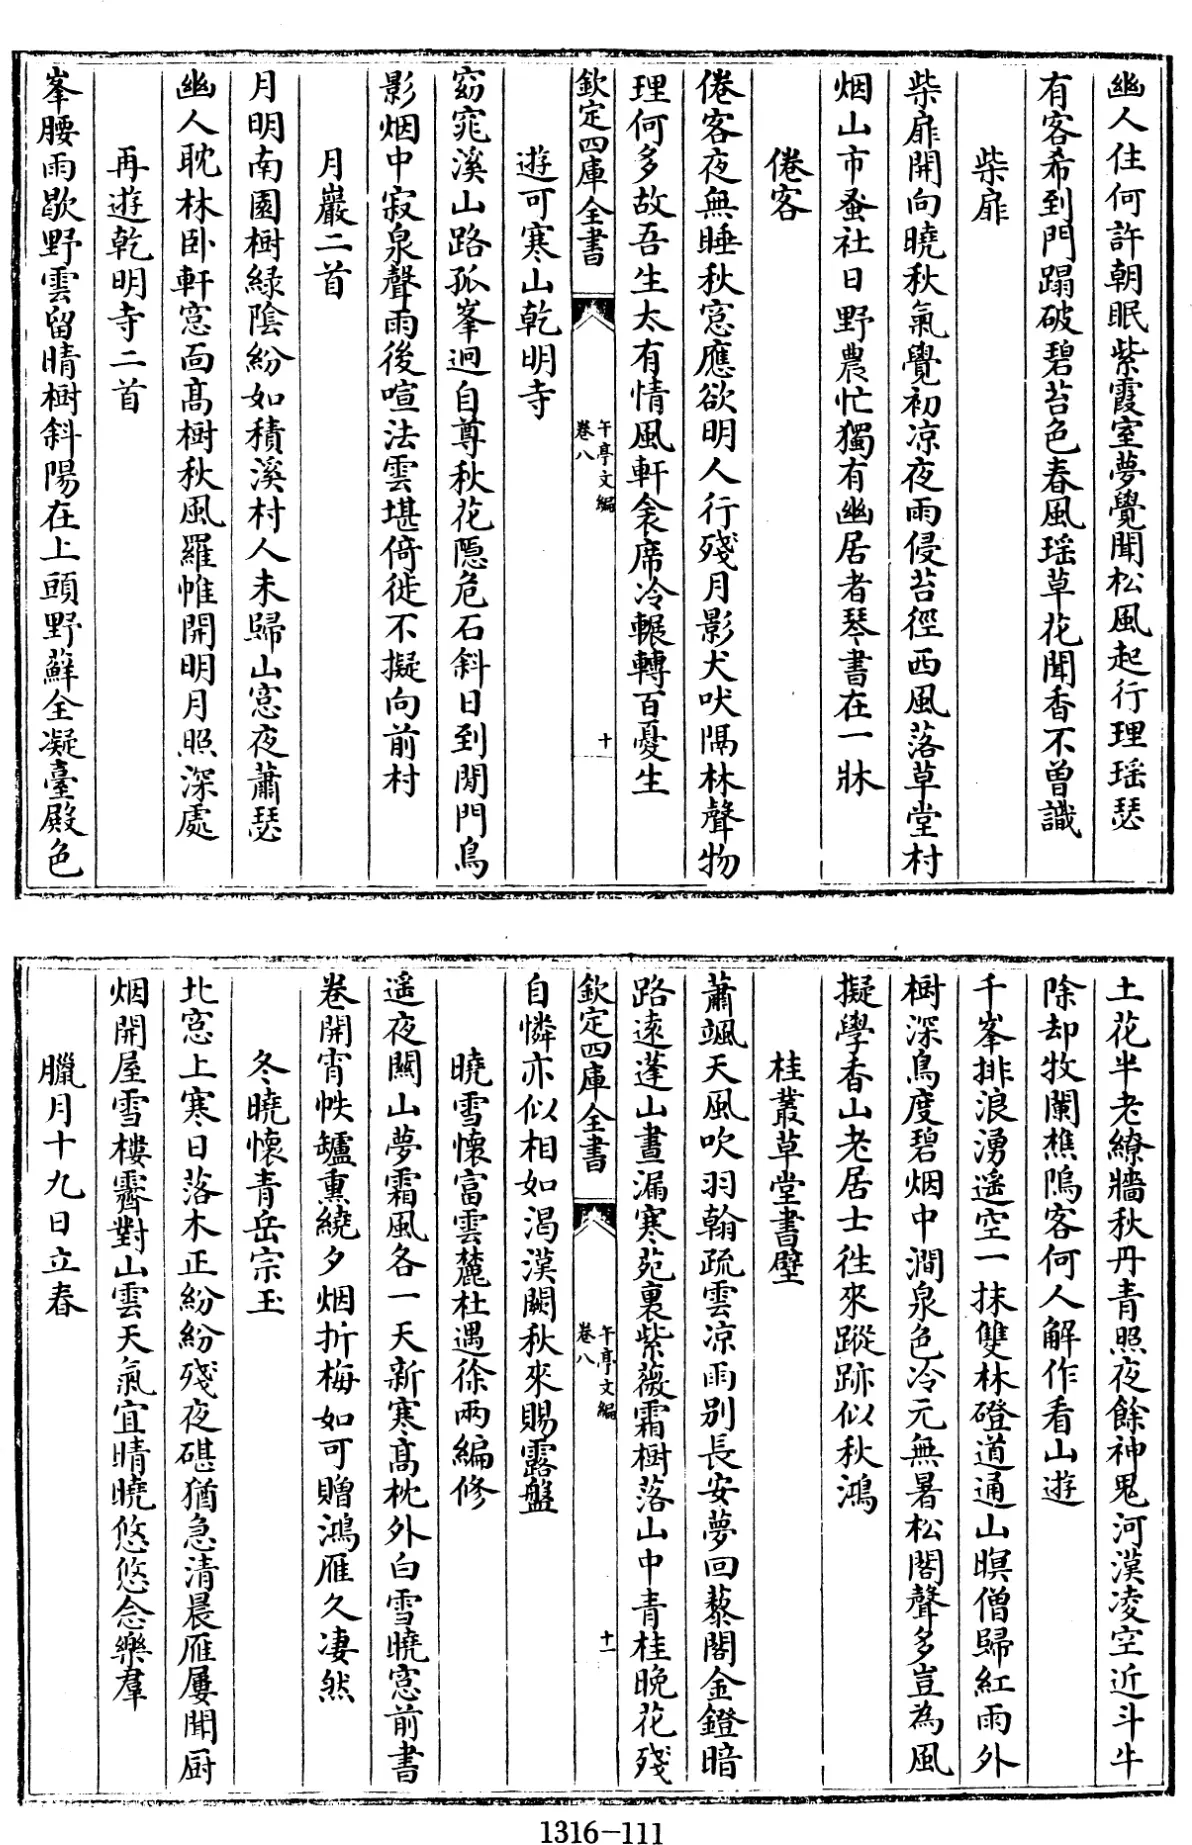 幽人住何許朝眠紫霞室夢覺聞松風起行理瑶瑟
有客希到門蹋破碧苔色春風瑶草花聞香不曽識
柴扉
柴扉開向曉秋氣覺初凉夜雨侵苔徑西風落草堂村
烟山市蚤社日野農忙獨有幽居者琴書在一牀
倦客
倦客夜無睡秋窓應欲明人行殘月影犬吠隔林聲物
理何多故吾生太有情風軒衾席冷輾轉百憂生
欽定四庫全書
午亭文編
卷八
十
遊可寒山乾明寺
窈窕溪山路孤峯迥自尊秋花隱危石斜日到閒門鳥
影烟中寂泉聲雨後喧法雲堪倚徙不擬向前村
月巖二首
月明南園樹緑陰紛如積溪村人未歸山窓夜蕭瑟
幽人耽林卧軒窓面髙樹秋風羅帷開明月照深處
再遊乾明寺二首
峯腰雨歇野雲留晴樹斜陽在上頭野蘚全凝臺殿色
土花半老繚牆秋丹青照夜餘神鬼河漢凌空近斗牛
除却牧闌樵隖客何人解作看山遊
千峯排浪湧遥空一抹雙林磴道通山暝僧歸紅雨外
樹深鳥度碧烟中澗泉色冷元無暑松閣聲多豈為風
擬學香山老居士往來蹤跡似秋鴻
桂叢草堂書壁
蕭颯天風吹羽翰疏雲凉雨别長安夢回藜閣金鐙暗
路遠蓬山晝漏寒苑裏紫薇霜樹落山中青桂晚花殘
欽定四庫全書
午亭文編
卷八
十一
自憐亦似相如渴漢闕秋來賜露盤
曉雪懷富雲麓杜遇徐兩編修
遥夜闗山夢霜風各一天新寒髙枕外白雪曉窓前書
卷開宵帙罏熏繞夕烟折梅如可贈鴻雁久凄然
冬曉懷青岳宗玉
北窓上寒日落木正紛紛殘夜碪猶急清晨雁屢聞厨
烟開屋雪樓霽對山雲天氣宜晴曉悠悠念樂羣
臘月十九日立春
1316-111